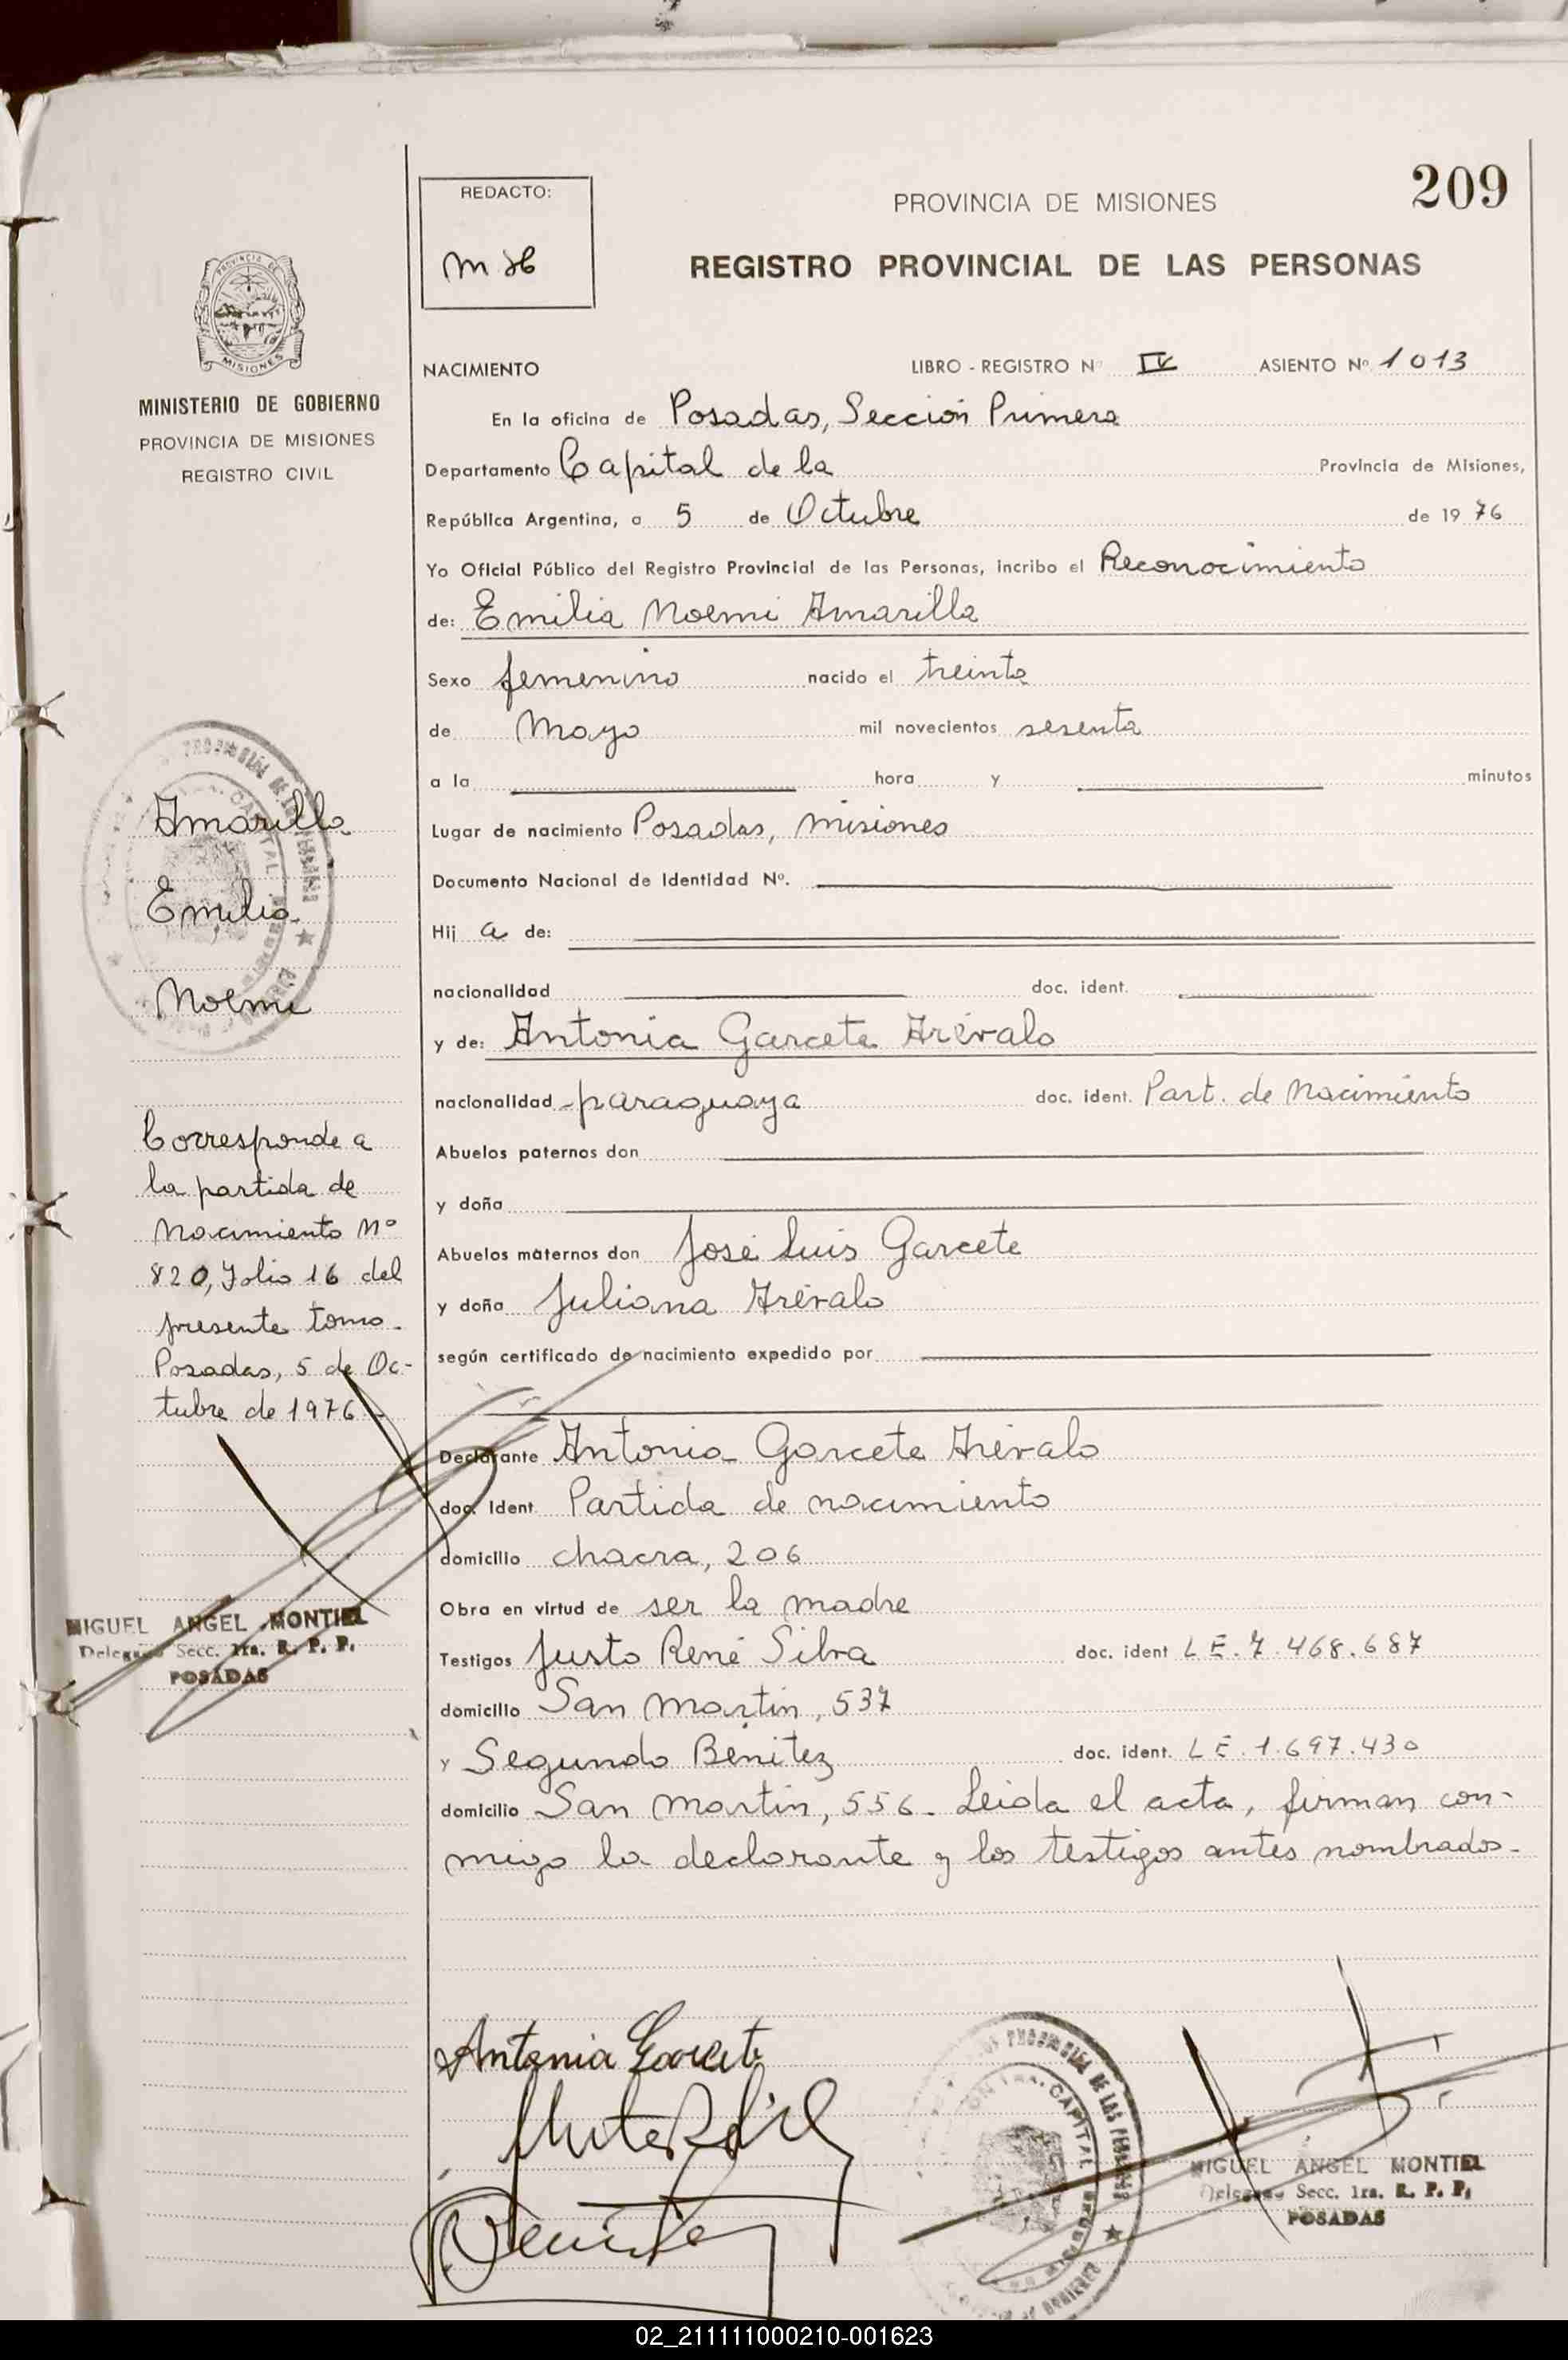 209
REDACTO:
PROVINCIA DE MISIONES
REGISTRO PROVINCIAL DE LAS PERSONAS
MISIONES
MINISTERIO DE GOBIERNO
PROVINCIA DE MISIONES
REGISTRO CIVIL
NACIMIENTO LIBRO - REGISTRO Nº IV ASIENTO Nº 1013
En la oficina de Posadas, Sección Primera
Departamento Capital de la Provincia de Misiones,
República Argentina, a 5 de Octubre de 1976
Yo Oficial Público del Registro Provincial de las Personas, incribo el Reconocimiento
de: Emilia Noemi Amarilla
Sexo femenino nacido el treinta
de Mayo mil novecientos sesenta
a la hora y minutos
Lugar de nacimiento Posadas, Misiones
Documento Nacional de Identidad Nº.
Hij a de:
nacionalidad doc. ident.
y de: Antonia Garcete Arévalo
nacionalidad paraguaya doc. ident. Part. de Nacimiento
Abuelos paternos don
y doña
Abuelos maternos don José Luis Garcete
y doña Juliana Arévalo
según certificado de nacimiento expedido por
Declarante Antonia Garcete Arévalo
doc. Ident Partida de nacimiento
domicilio chacra, 206
Obra en virtud de ser la madre
Testigos Justo René Silva doc. ident LE.7.468.687
domicilio San Martin, 537
y Segundo Benitez doc. ident. LE.1.697.430
domicilio San Martin, 556. Leida el acta, firman con-
migo la declarante y los testigos antes nombrados.
Amarilla
Emilia
Noemi
Corresponde a
la partida de
Nacimiento Nº
820, Folio 16 del
presente tomo.
Posadas, 5 de Oc-
tubre de 1976
MIGUEL ANGEL MONTIEL
Delegado Secc. 1ra. R. P. P.
POSADAS
Antonia Garcete
MIGUEL ANGEL MONTIEL
Delegado Secc. 1ra. R. P. P.
POSADAS
02_211111000210-001623